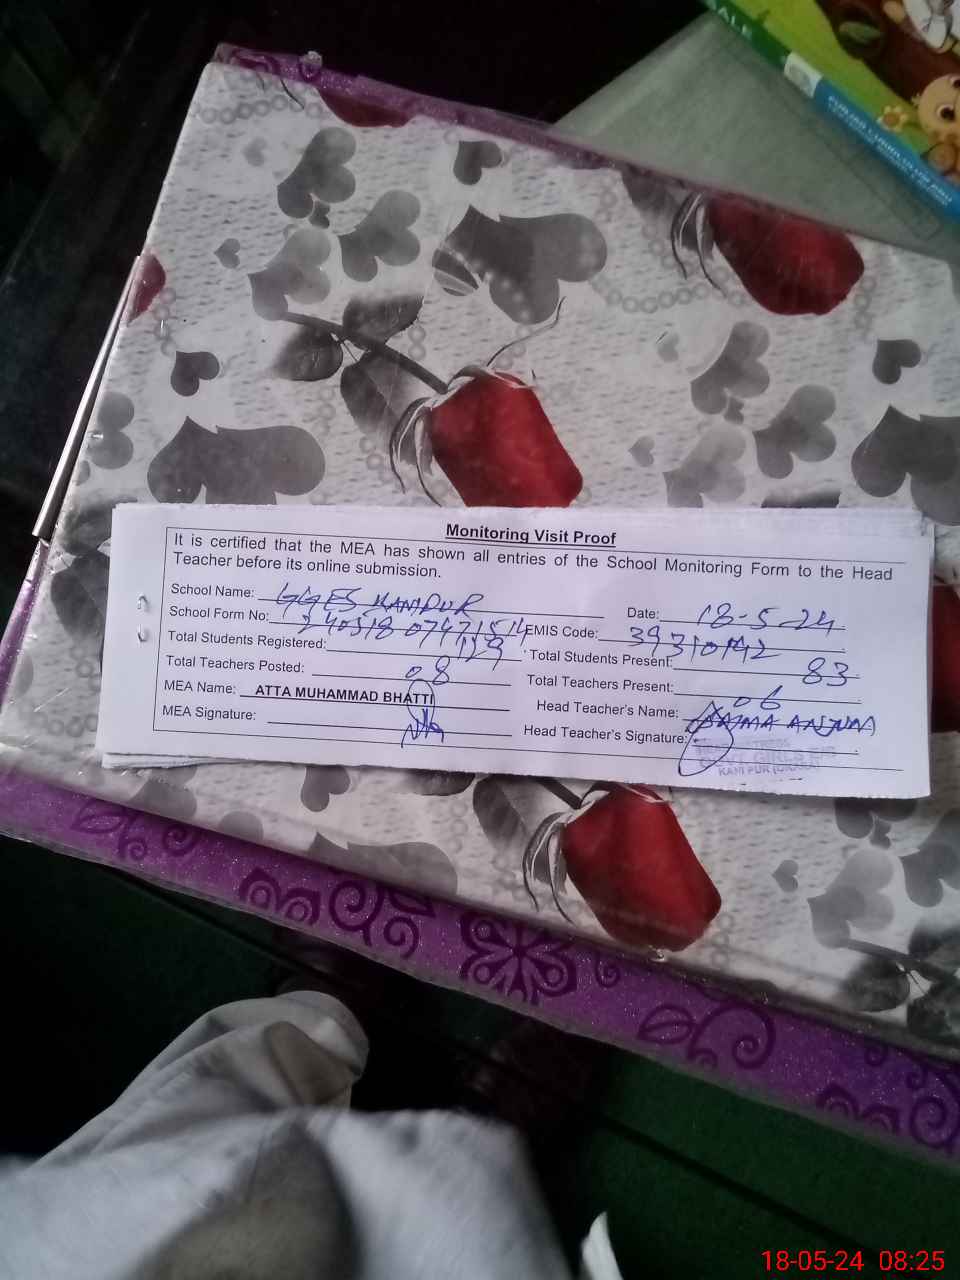 Monitoring Visit Proof
It is certified that the MEA has shown all entries of the School Monitoring Form to the Head
Teacher before its online submission.
School Name: GGES KANIPUR
Date: 18-5-24
School Form No: 240518 07471514
EMIS Code: 39310142
Total Students Registered: 129
Total Students Present: 83
Total Teachers Posted: 08
Total Teachers Present: 06
MEA Name: ATTA MUHAMMAD BHATTI
Head Teacher's Name: ANJUM
MEA Signature:
Head Teacher's Signature:
GOVT. GIRLS
18-05-24 08:25